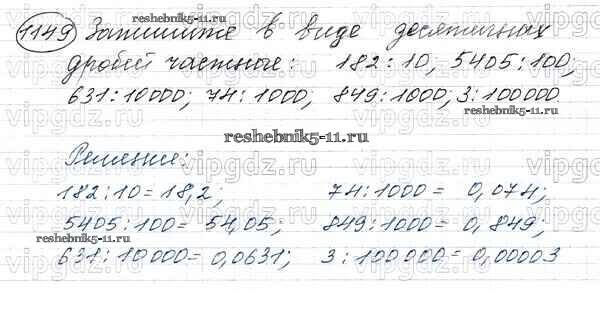 1149 Запишите в виде десятичных
дробей частные: 182:10, 5405:100;
631:10000; 74:1000; 849:1000; 3:100000.
reshebnik5-11.ru
reshebnik5-11.ru
reshebnik5-11.ru
Решение:
182:10 = 18,2; 74:1000 = 0,074;
5405:100 = 54,05; 849:1000 = 0,849;
reshebnik5-11.ru
631:10000 = 0,0631; 3:100000 = 0,00003
vipgdz.ru vipgdz.ru vipgdz.ru